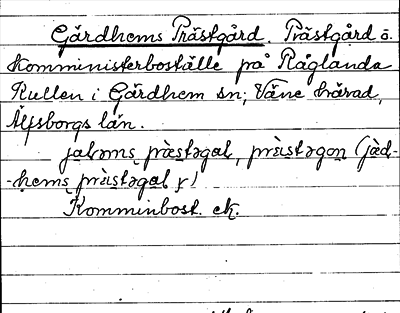 Gärdhems Prästgård. Prästgård o.
komministerboställe på Råglanda
Kullen i Gärdhem sn; Väne härad,
Älfsborgs län.
jalɘms præstɘgaḷ, præistɘgɘn (jäd-
-hems præistɘgaḷ)
Komminbost. ek.